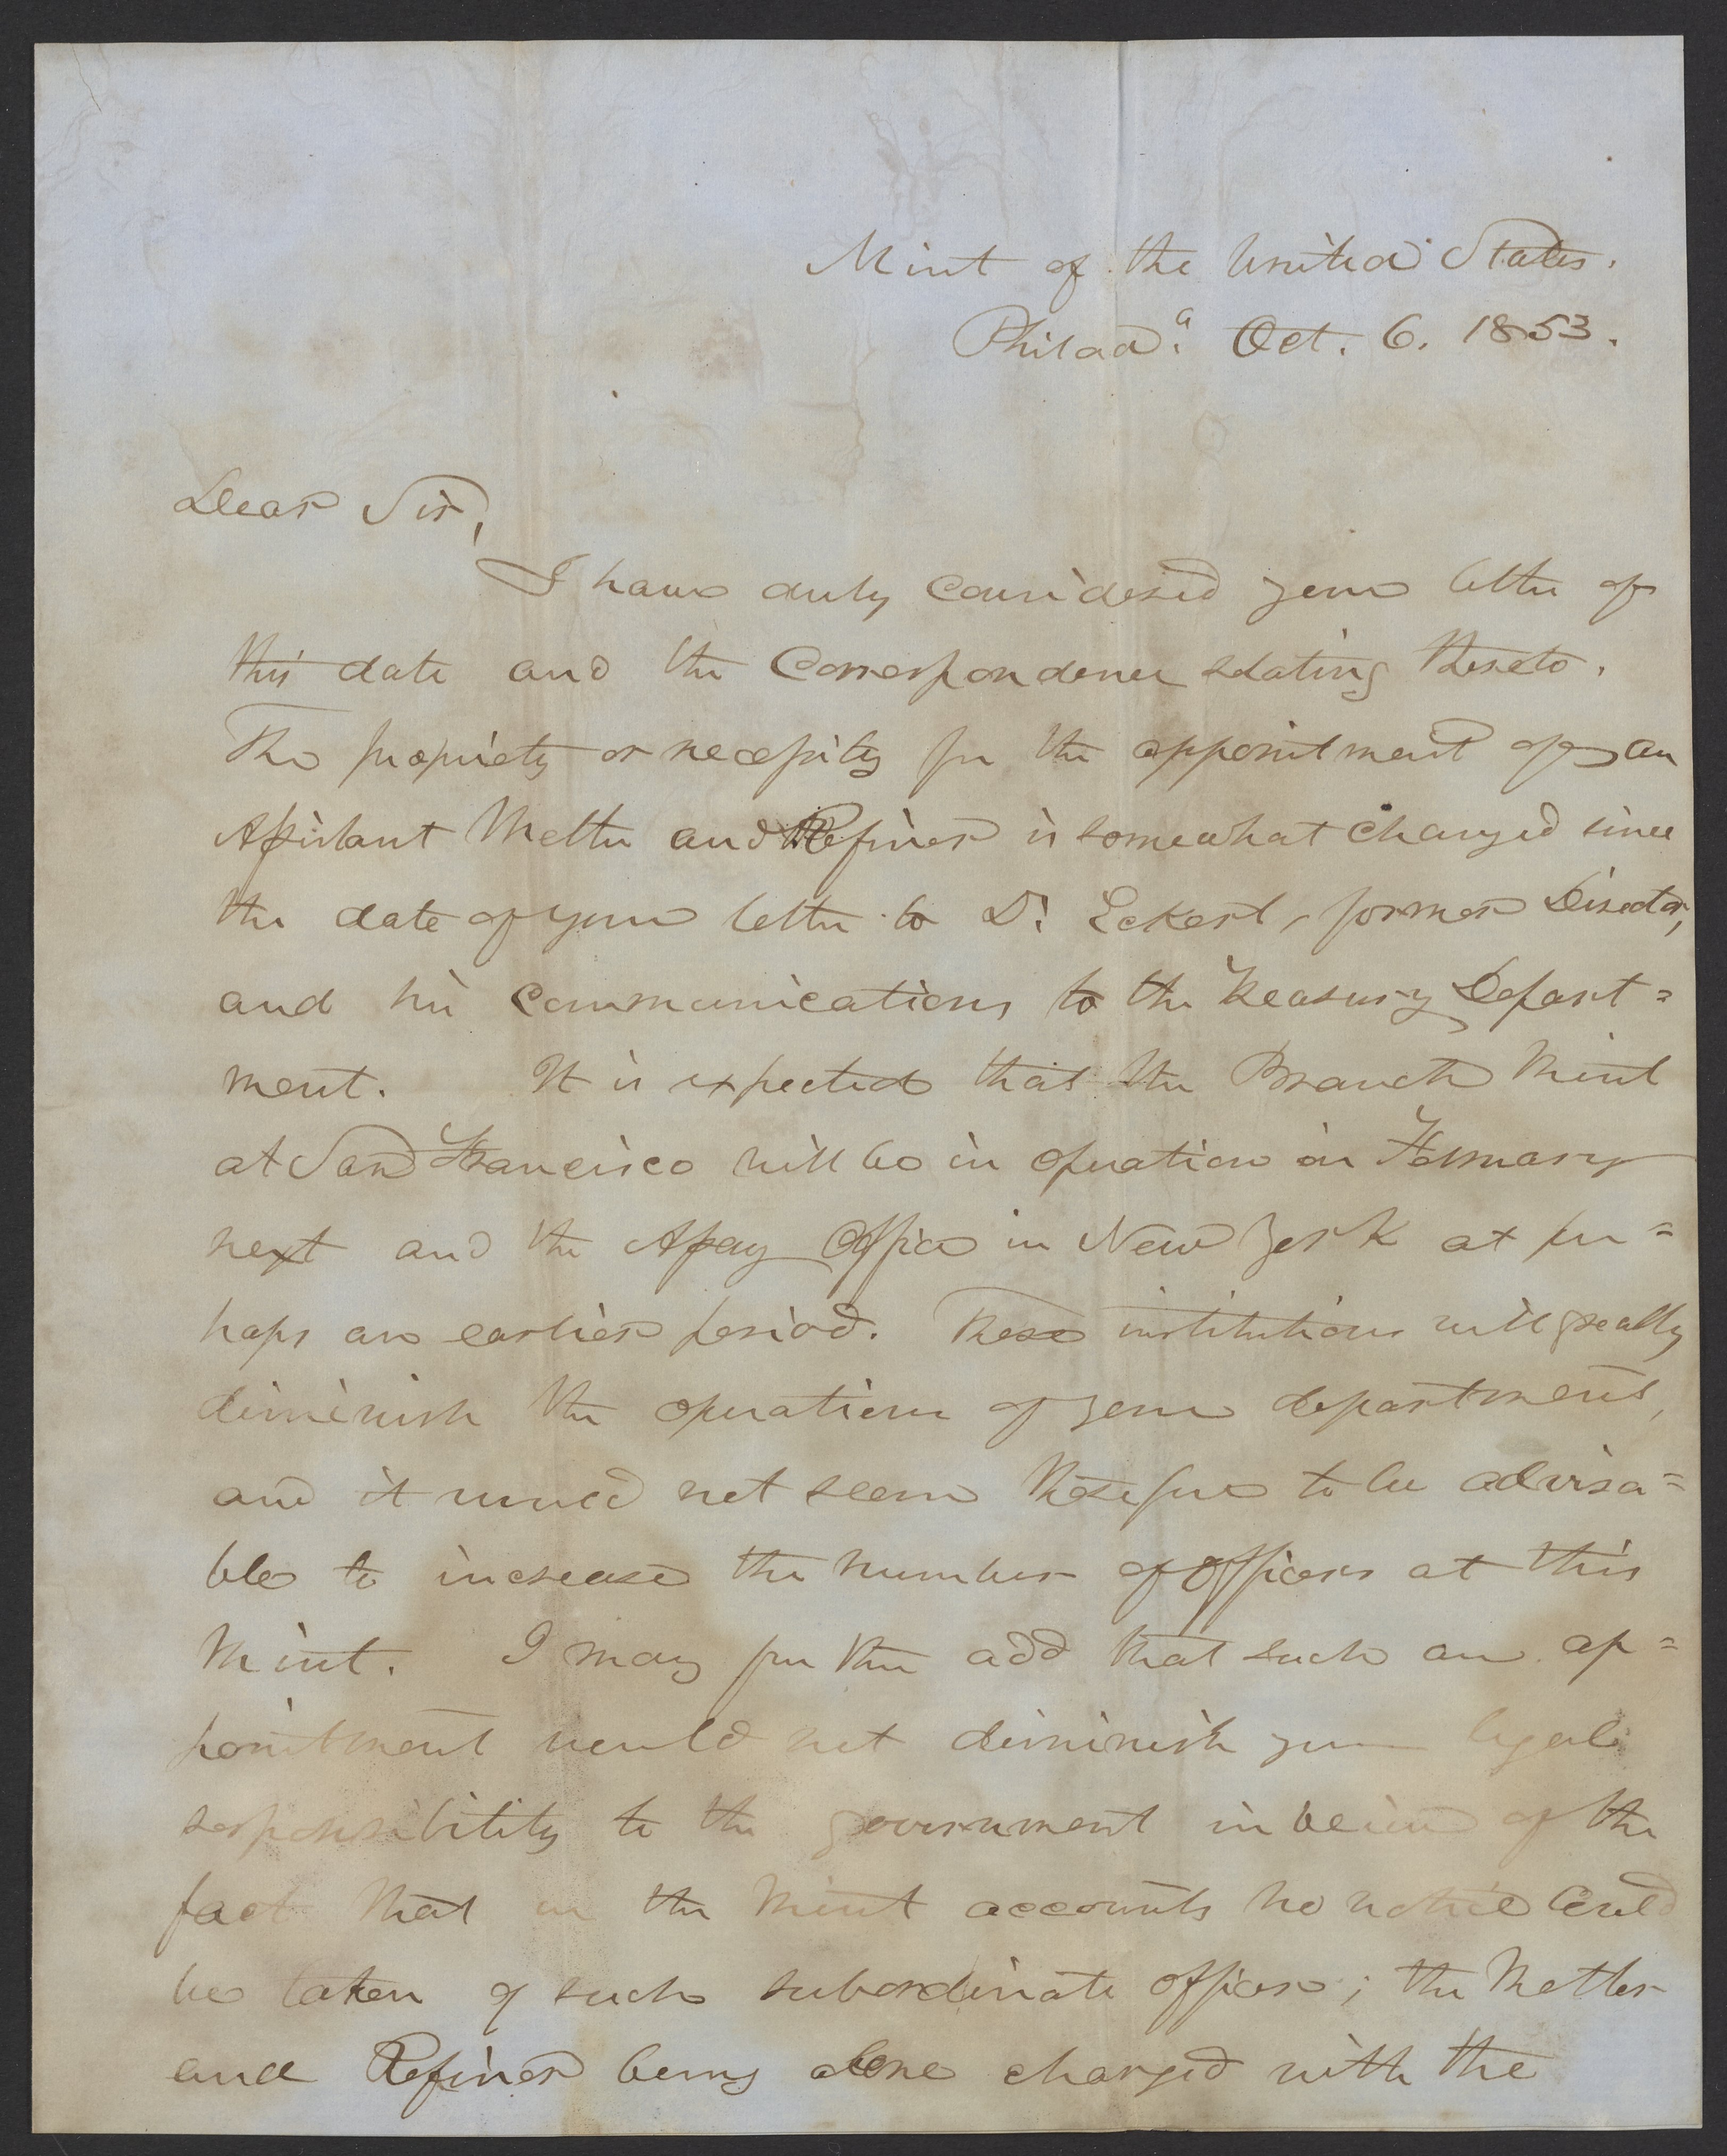 Mint of the United States.
Philada. Oct. 6. 1853.
Dear Sir,
I have duly considered your letter of
this date and the Correspondence relating thereto.
The propriety or necessity for the appointment of an
Assistant Melter and Refiner is somewhat changed since
the date of your letter to Dr. Eckert, former Director,
and his communications to the Treasury Depart=
ment. It is expected that the Branch Mint
at San Francisco will be in operation in February
next and the Assay Office in New York at per=
haps an earlier period. These institutions will greatly
diminish the operations of your department,
and it would not seem therefore to be advisa=
ble to increase the number of officers at this
Mint. I may further add that such an ap=
pointment would not diminish your legal
responsibility to the government in view of the
fact that in the Mint accounts no notice could
be taken of such subordinate officer; the Melter
and Refiner being alone charged with the